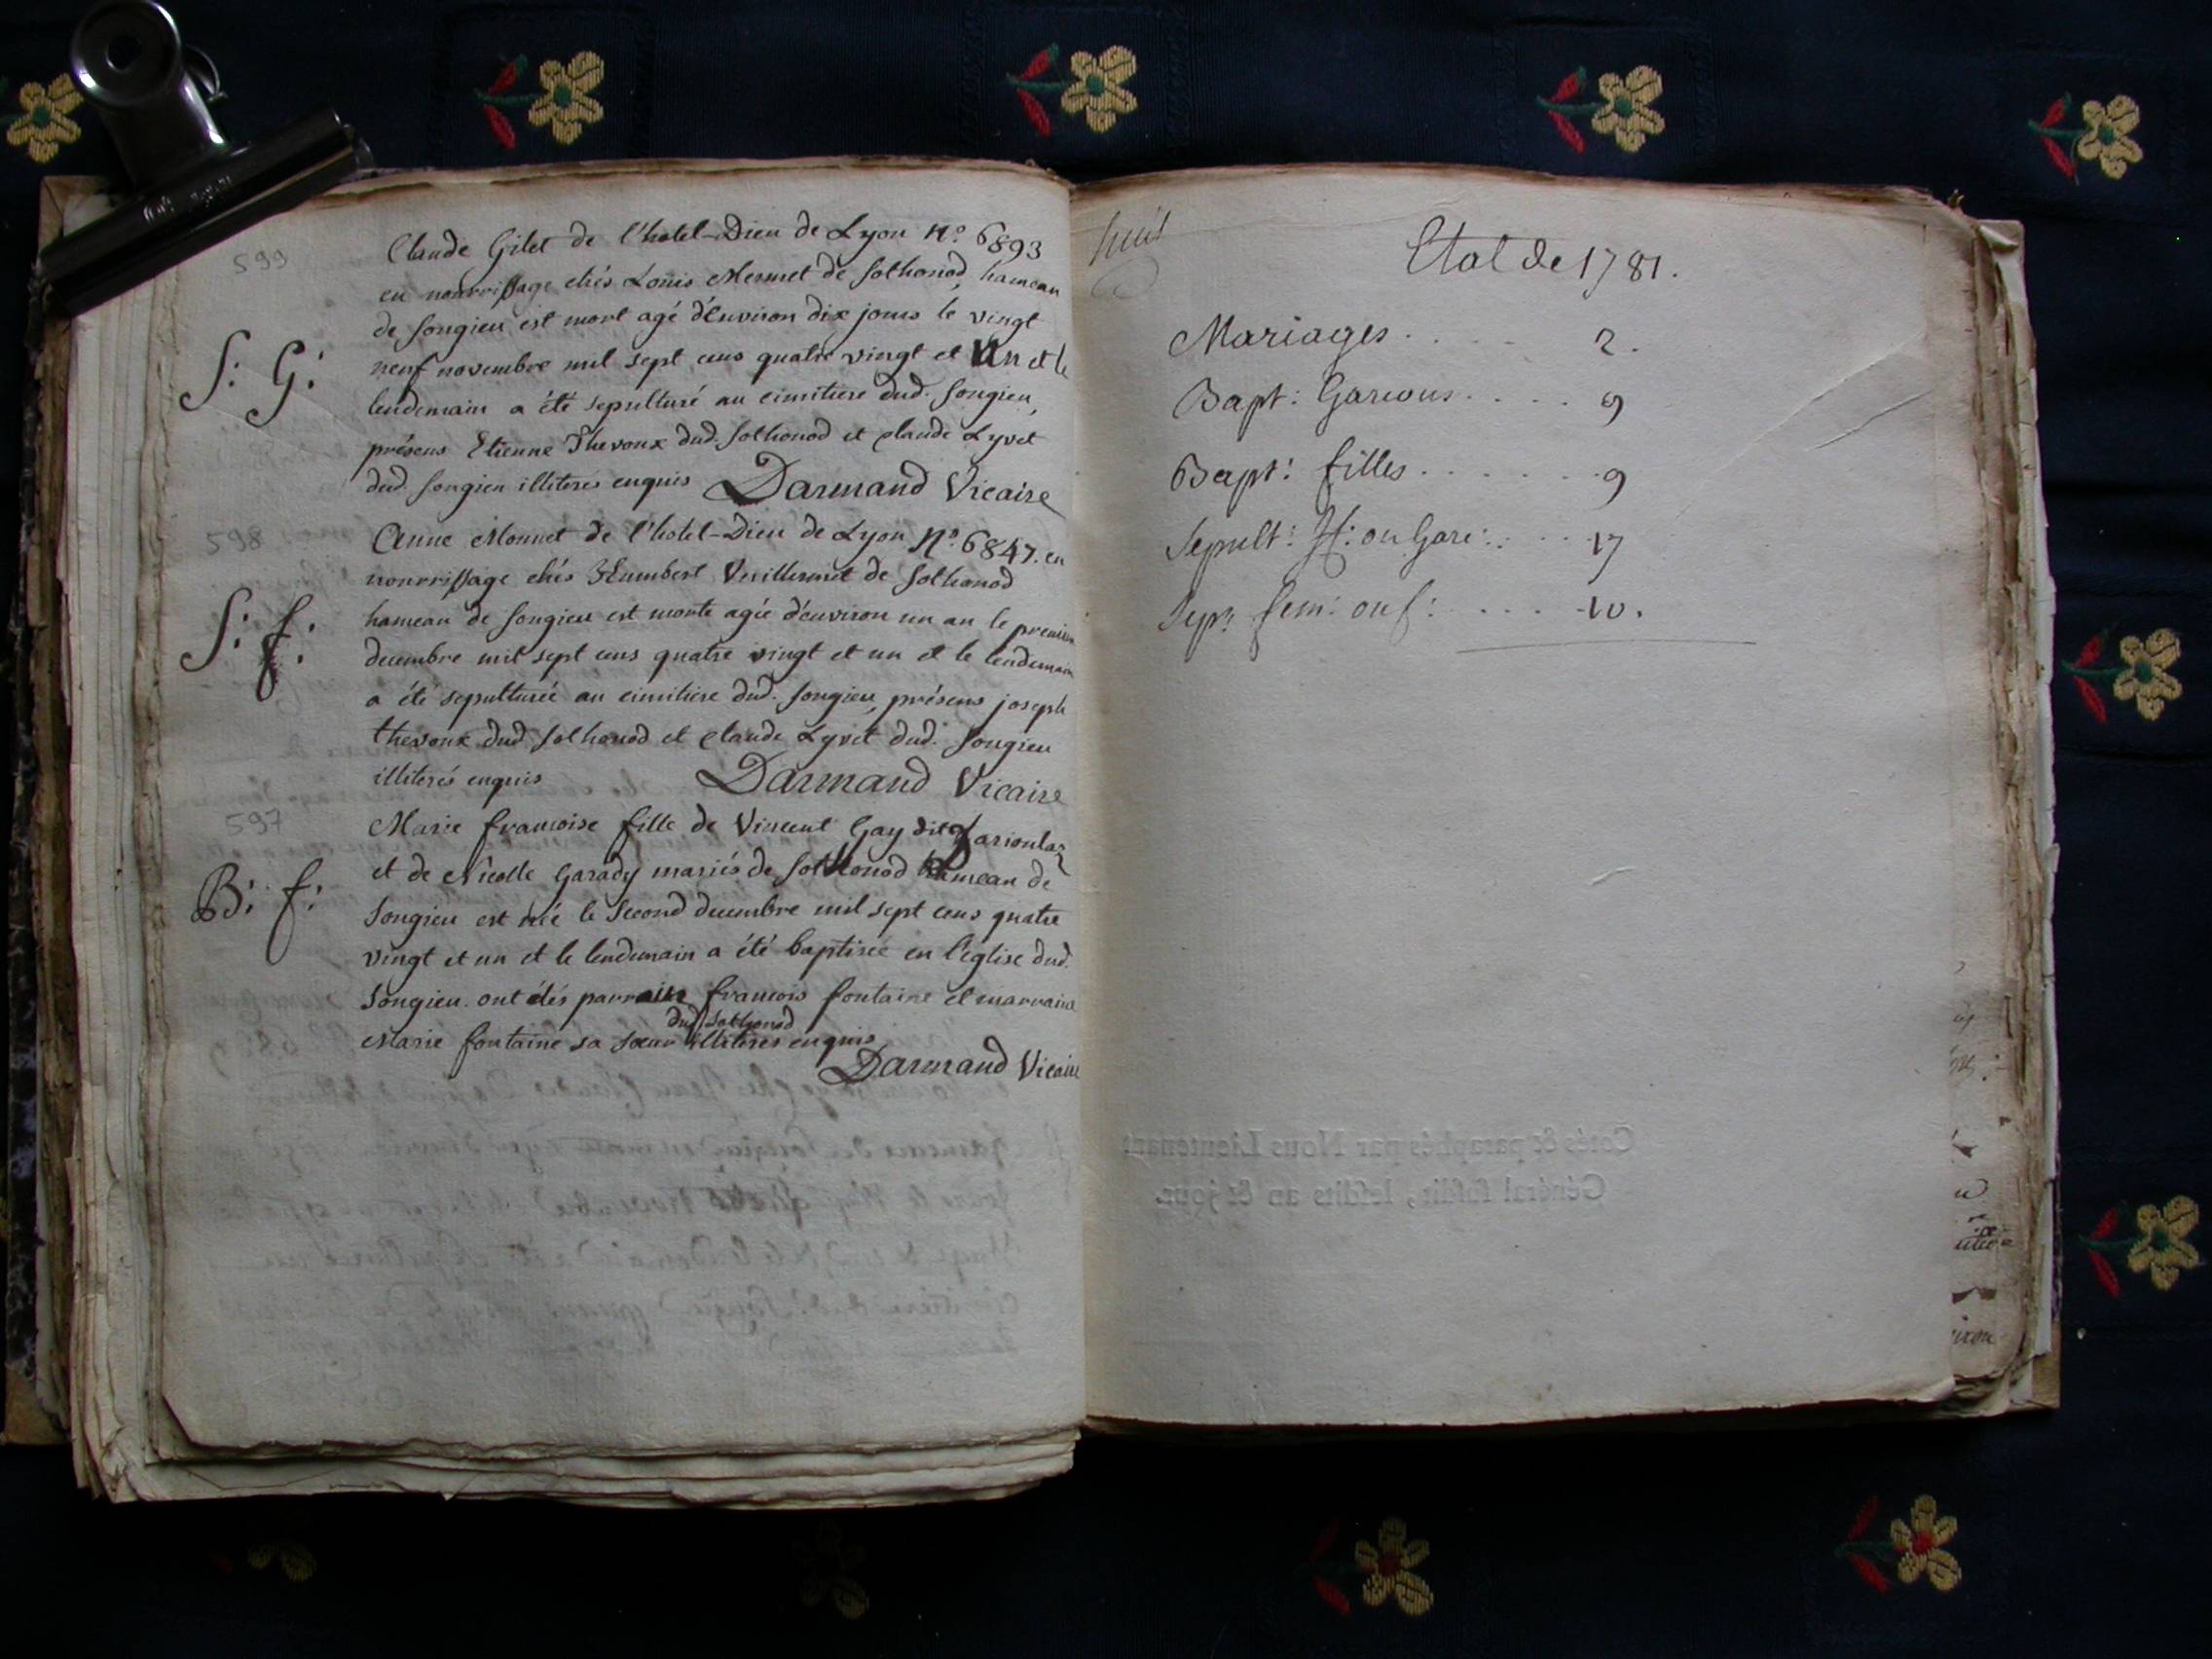 599
Claude Gilet de l'hotel-Dieu de Lyon N.o 6893
en nourrissage chés Louis Mermet de Sothonod, hameau
de Songieu est mort agé d'environ dix jours le vingt
S: G: neuf novembre mil sept cens quatre vingt et un et le
lendemain a été sepulturé au cimitiere dud. Songieu,
présens Etienne Thevoux dud. Sothonod et claude Lyvet
dud. Songieu illiterés enquis Darmand Vicaire
598
Anne Monnet de l'hotel-Dieu de Lyon N.o 6847. en
nourrissage chés Humbert Vuillermet de Sothonod
S: f: hameau de Songieu est morte agée d'environ un an le premier
decembre mil sept cens quatre vingt et un et le lendemain
a été sepulturée au cimitiere dud. Songieu, présens joseph
thevoux dud. Sothonod et claude Lyvet dud. Songieu
illiterés enquis Darmand Vicaire
597
Marie francoise fille de Vincent Gay dit
et de Nicolle Garady mariés de Sothonod hameau de
B: f: Songieu est née le Second decembre mil sept cens quatre
vingt et un et le lendemain a été baptisée en l'eglise dud.
Songieu. ont étés parrain francois fontaine et marraine
dud. Sothonod
Marie fontaine sa soeur illiterés enquis
Darmand Vicaire
huit
Etat de 1781.
Mariages . . . . 2.
Bapt: Garcons . . . . 9
Bapt: filles . . . . . . 9
Sepult: H: ou Garc: . . . 17
Sep: fem: ou f: . . . . 10.
Cotés & paraphés par Nous Lieutenant
Général susdit, lesdits an & jour.